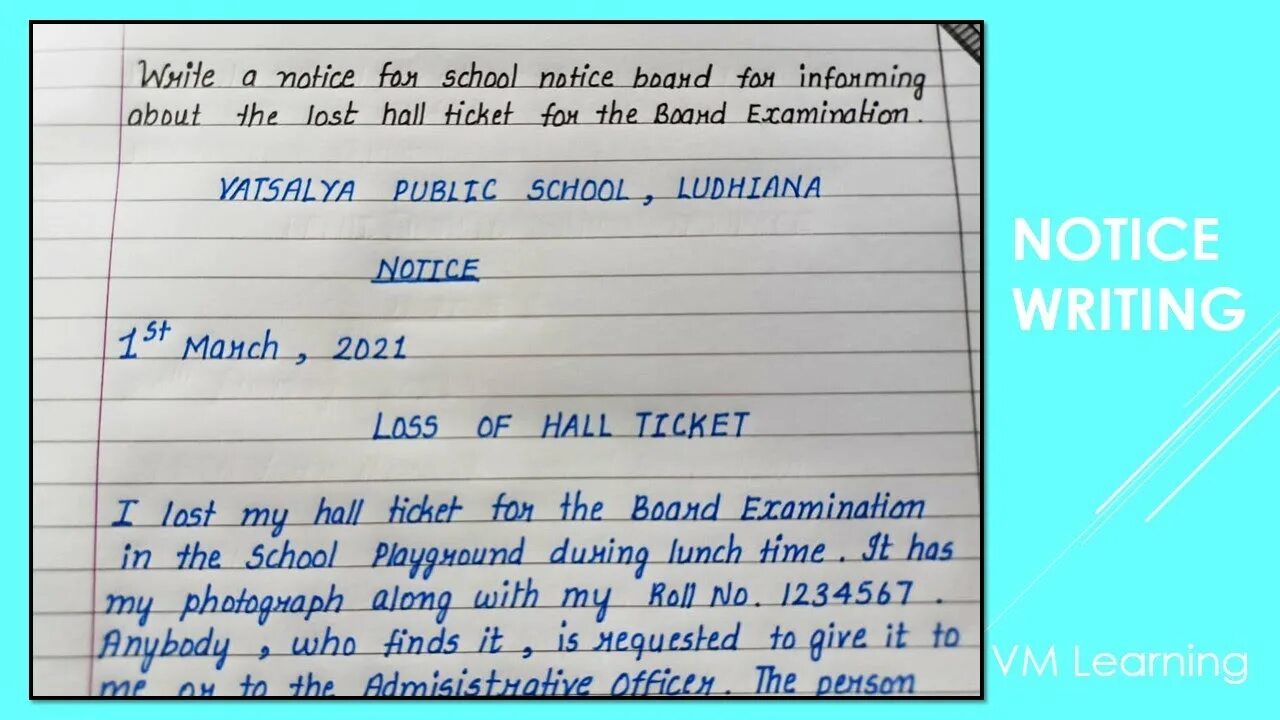 Write a notice for school notice board for informing
about the lost hall ticket for the Board Examination.
VATSALYA PUBLIC SCHOOL, LUDHIANA
NOTICE
1st March, 2021
LOSS OF HALL TICKET
I lost my hall ticket for the Board Examination
in the School Playground during lunch time. It has
my photograph along with my Roll No. 1234567.
Anybody, who finds it, is requested to give it to
me or to the Admisistrative Officer. The person
NOTICE
WRITING
VM Learning